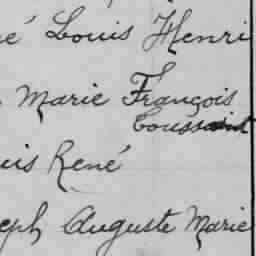 é Louis Henri
Marie François
Toussaint
uis René
eph Auguste Marie